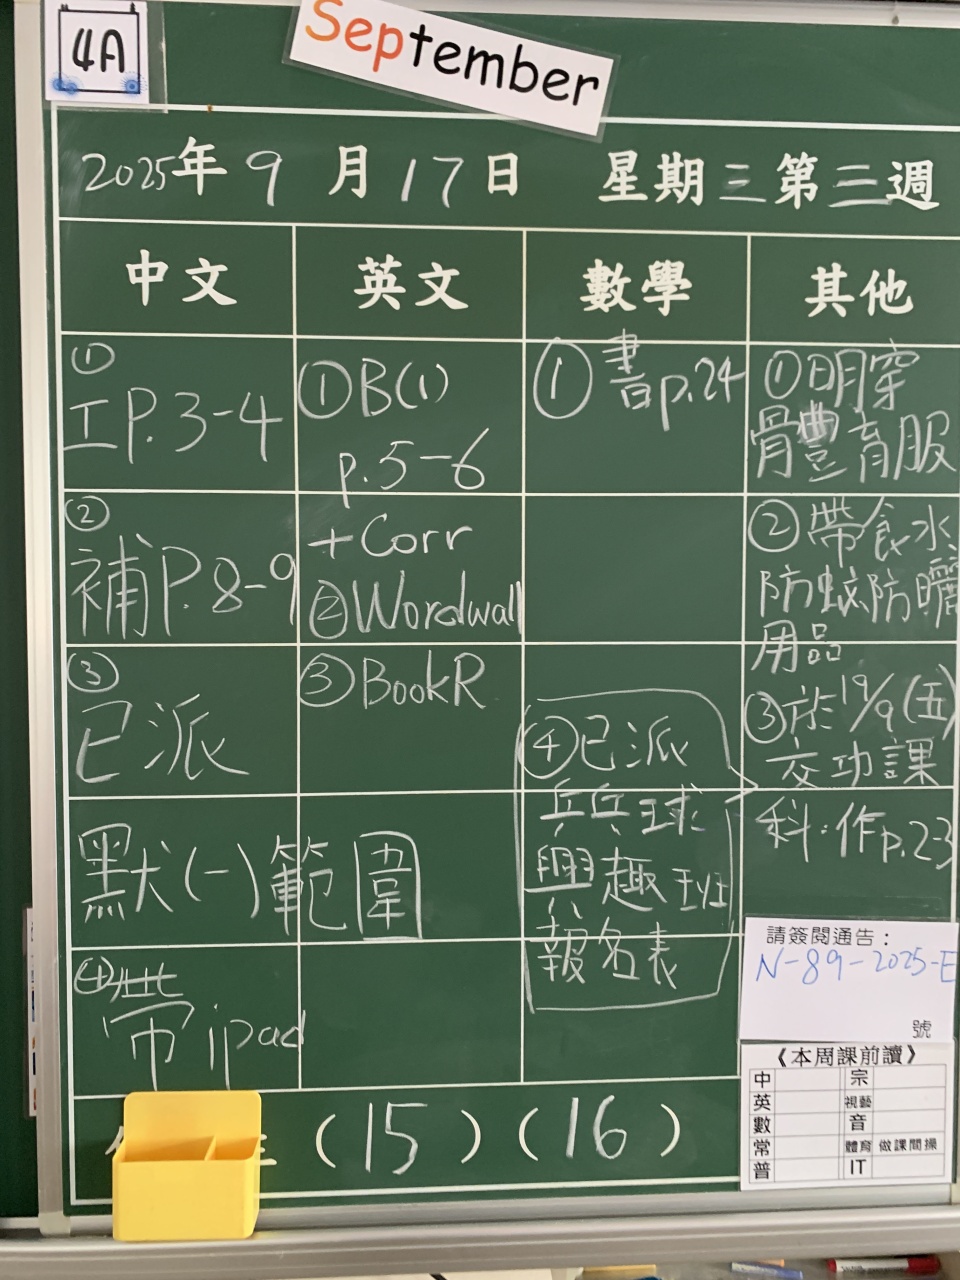 4A
September
2025年9月17日 星期三第三週
中文
英文
數學
其他
①
工P.3-4
②
補P.8-9
③
已派
默(一)範圍
④
帶ipad
①B(1)
p.5-6
+Corr
②Wordwall
③BookR
①書p.24
①明穿
體育服
②帶食水
防蚊防曬
用品
③於19/9(五)
交功課
科:作p.2-3
④已派
乒乓球
興趣班
報名表
請簽閱通告:
N-89-2025-E
號
《本周課前讀》
中 宗
英 視藝
數 音
常 體育 做課間操
普 IT
(15)(16)